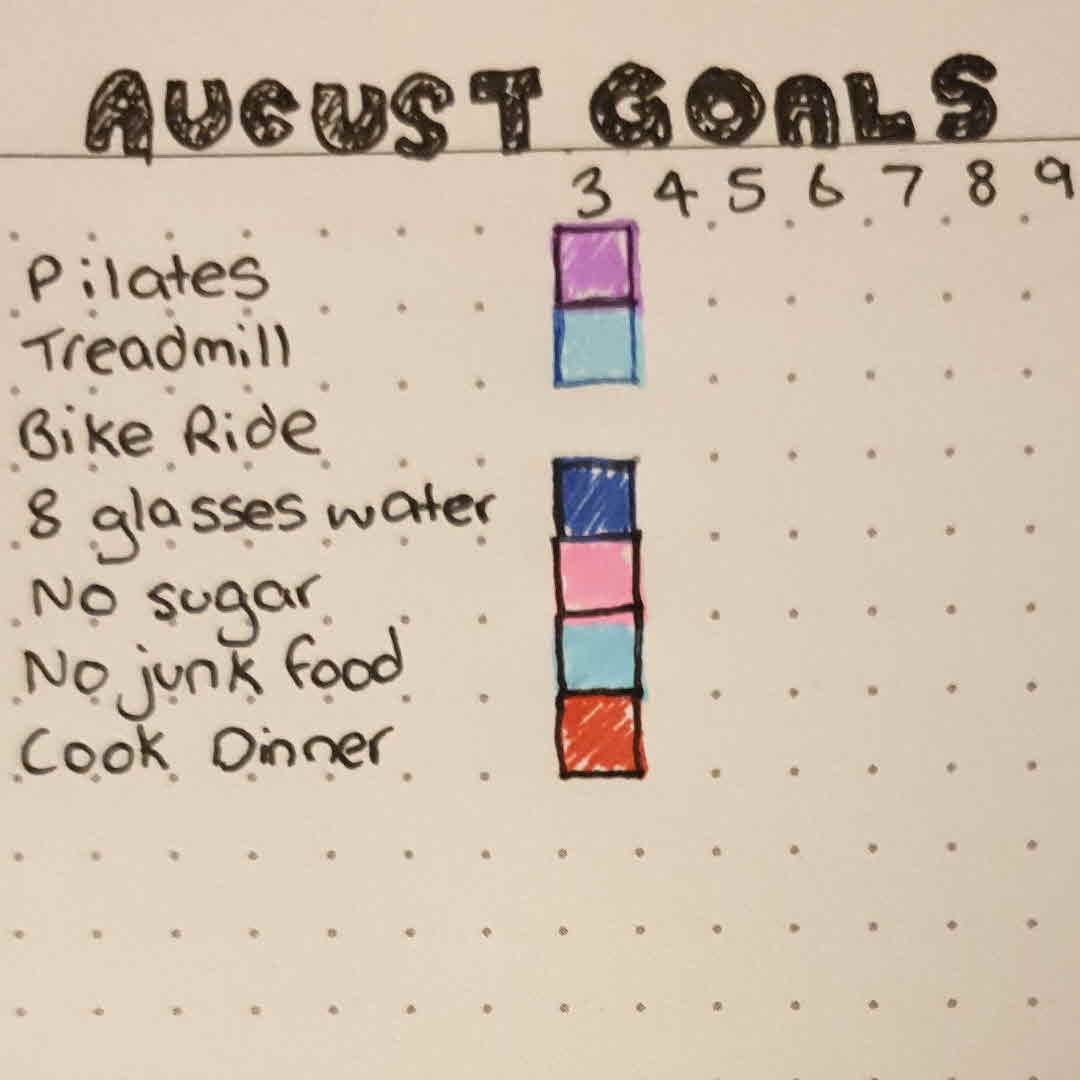 AUGUST GOALS
3 4 5 6 7 8 9
Pilates
Treadmill
Bike Ride
8 glasses water
No sugar
No junk food
Cook Dinner